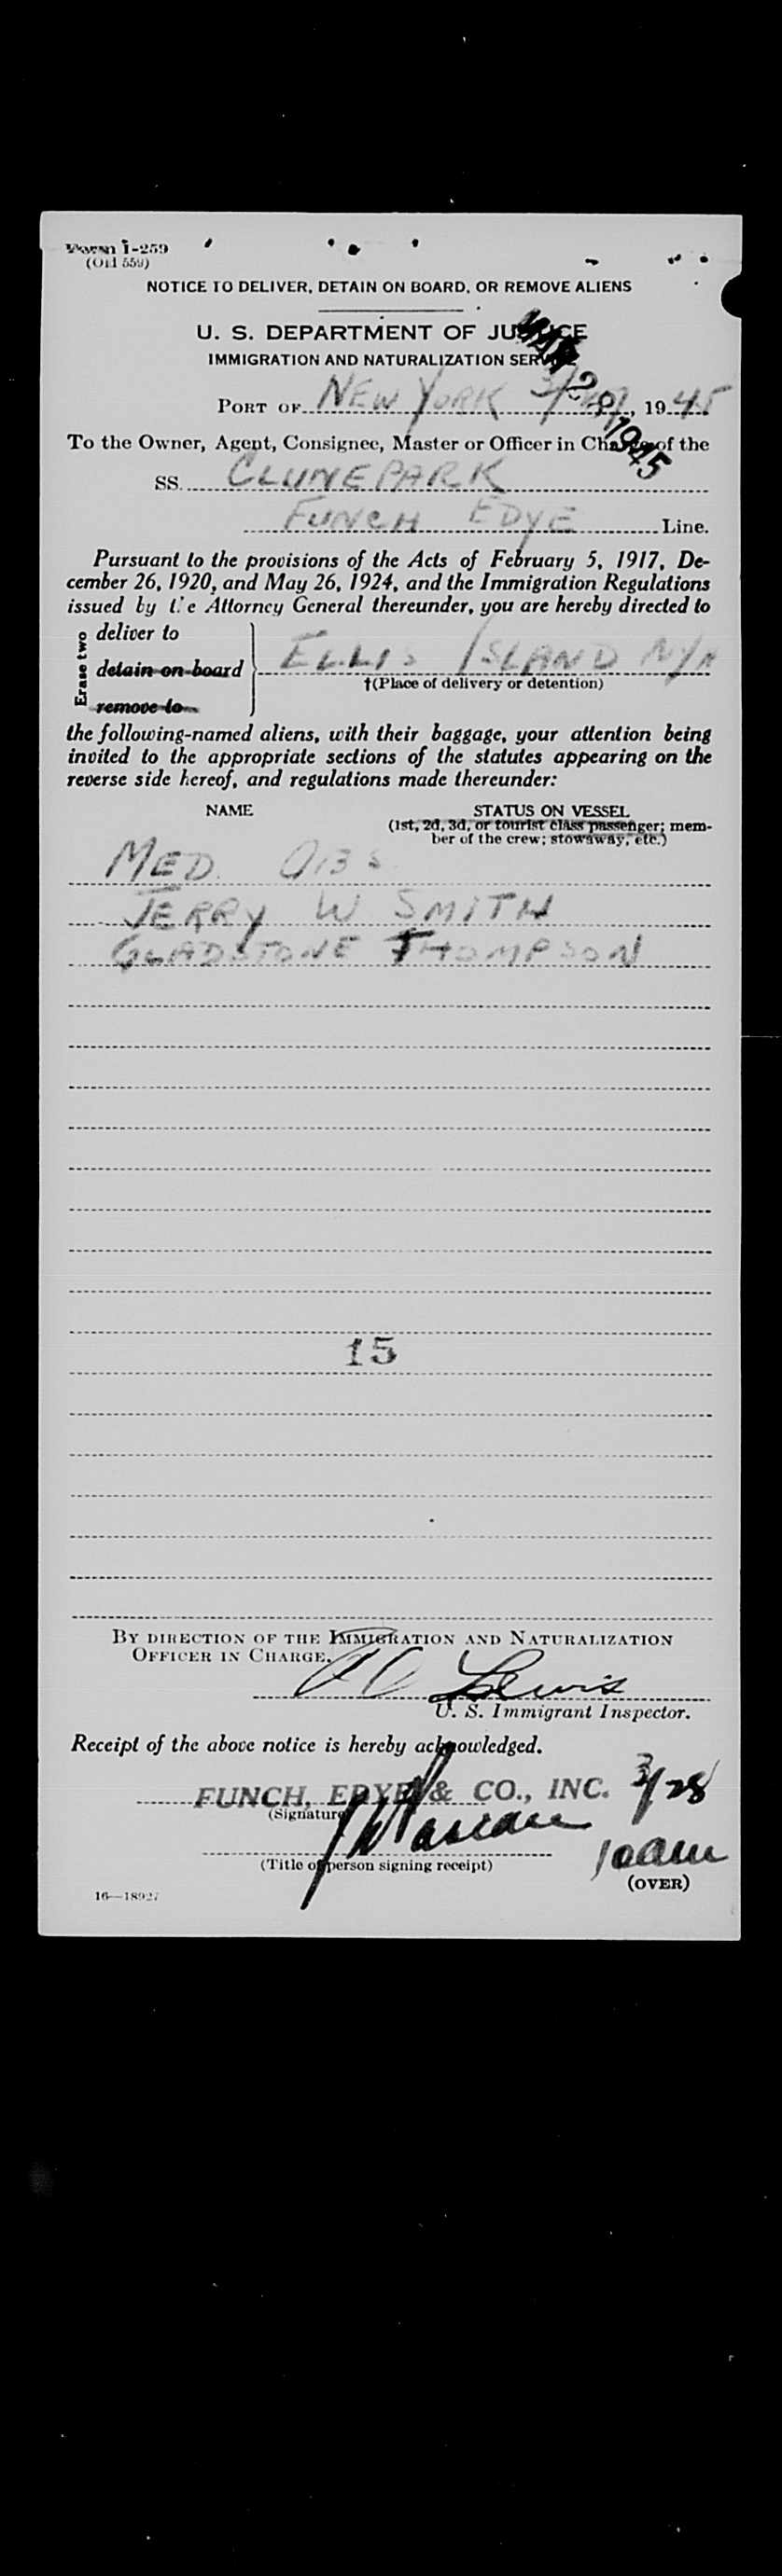 Form I-259
(Old 559)
NOTICE TO DELIVER, DETAIN ON BOARD, OR REMOVE ALIENS
U. S. DEPARTMENT OF JUSTICE
IMMIGRATION AND NATURALIZATION SERVICE
MAR 28 1945
PORT OF NEW YORK 3/ , 1945
To the Owner, Agent, Consignee, Master or Officer in Charge of the
SS. CLUNEPARK
FUNCH EDYE Line.
Pursuant to the provisions of the Acts of February 5, 1917, De-
cember 26, 1920, and May 26, 1924, and the Immigration Regulations
issued by the Attorney General thereunder, you are hereby directed to
Erase two
deliver to
detain on board
remove to
ELLIS ISLAND
†(Place of delivery or detention)
the following-named aliens, with their baggage, your attention being
invited to the appropriate sections of the statutes appearing on the
reverse side hereof, and regulations made thereunder:
NAME
STATUS ON VESSEL
(1st, 2d, 3d, or tourist class passenger; mem-
ber of the crew; stowaway, etc.)
MED. OBS
JERRY W SMITH
GLADSTONE THOMPSON
15
BY DIRECTION OF THE IMMIGRATION AND NATURALIZATION
OFFICER IN CHARGE,
Lewis
U. S. Immigrant Inspector.
Receipt of the above notice is hereby acknowledged.
FUNCH, EDYE & CO., INC. 3/28
(Signature)
10am
(Title of person signing receipt)
(OVER)
16—18927